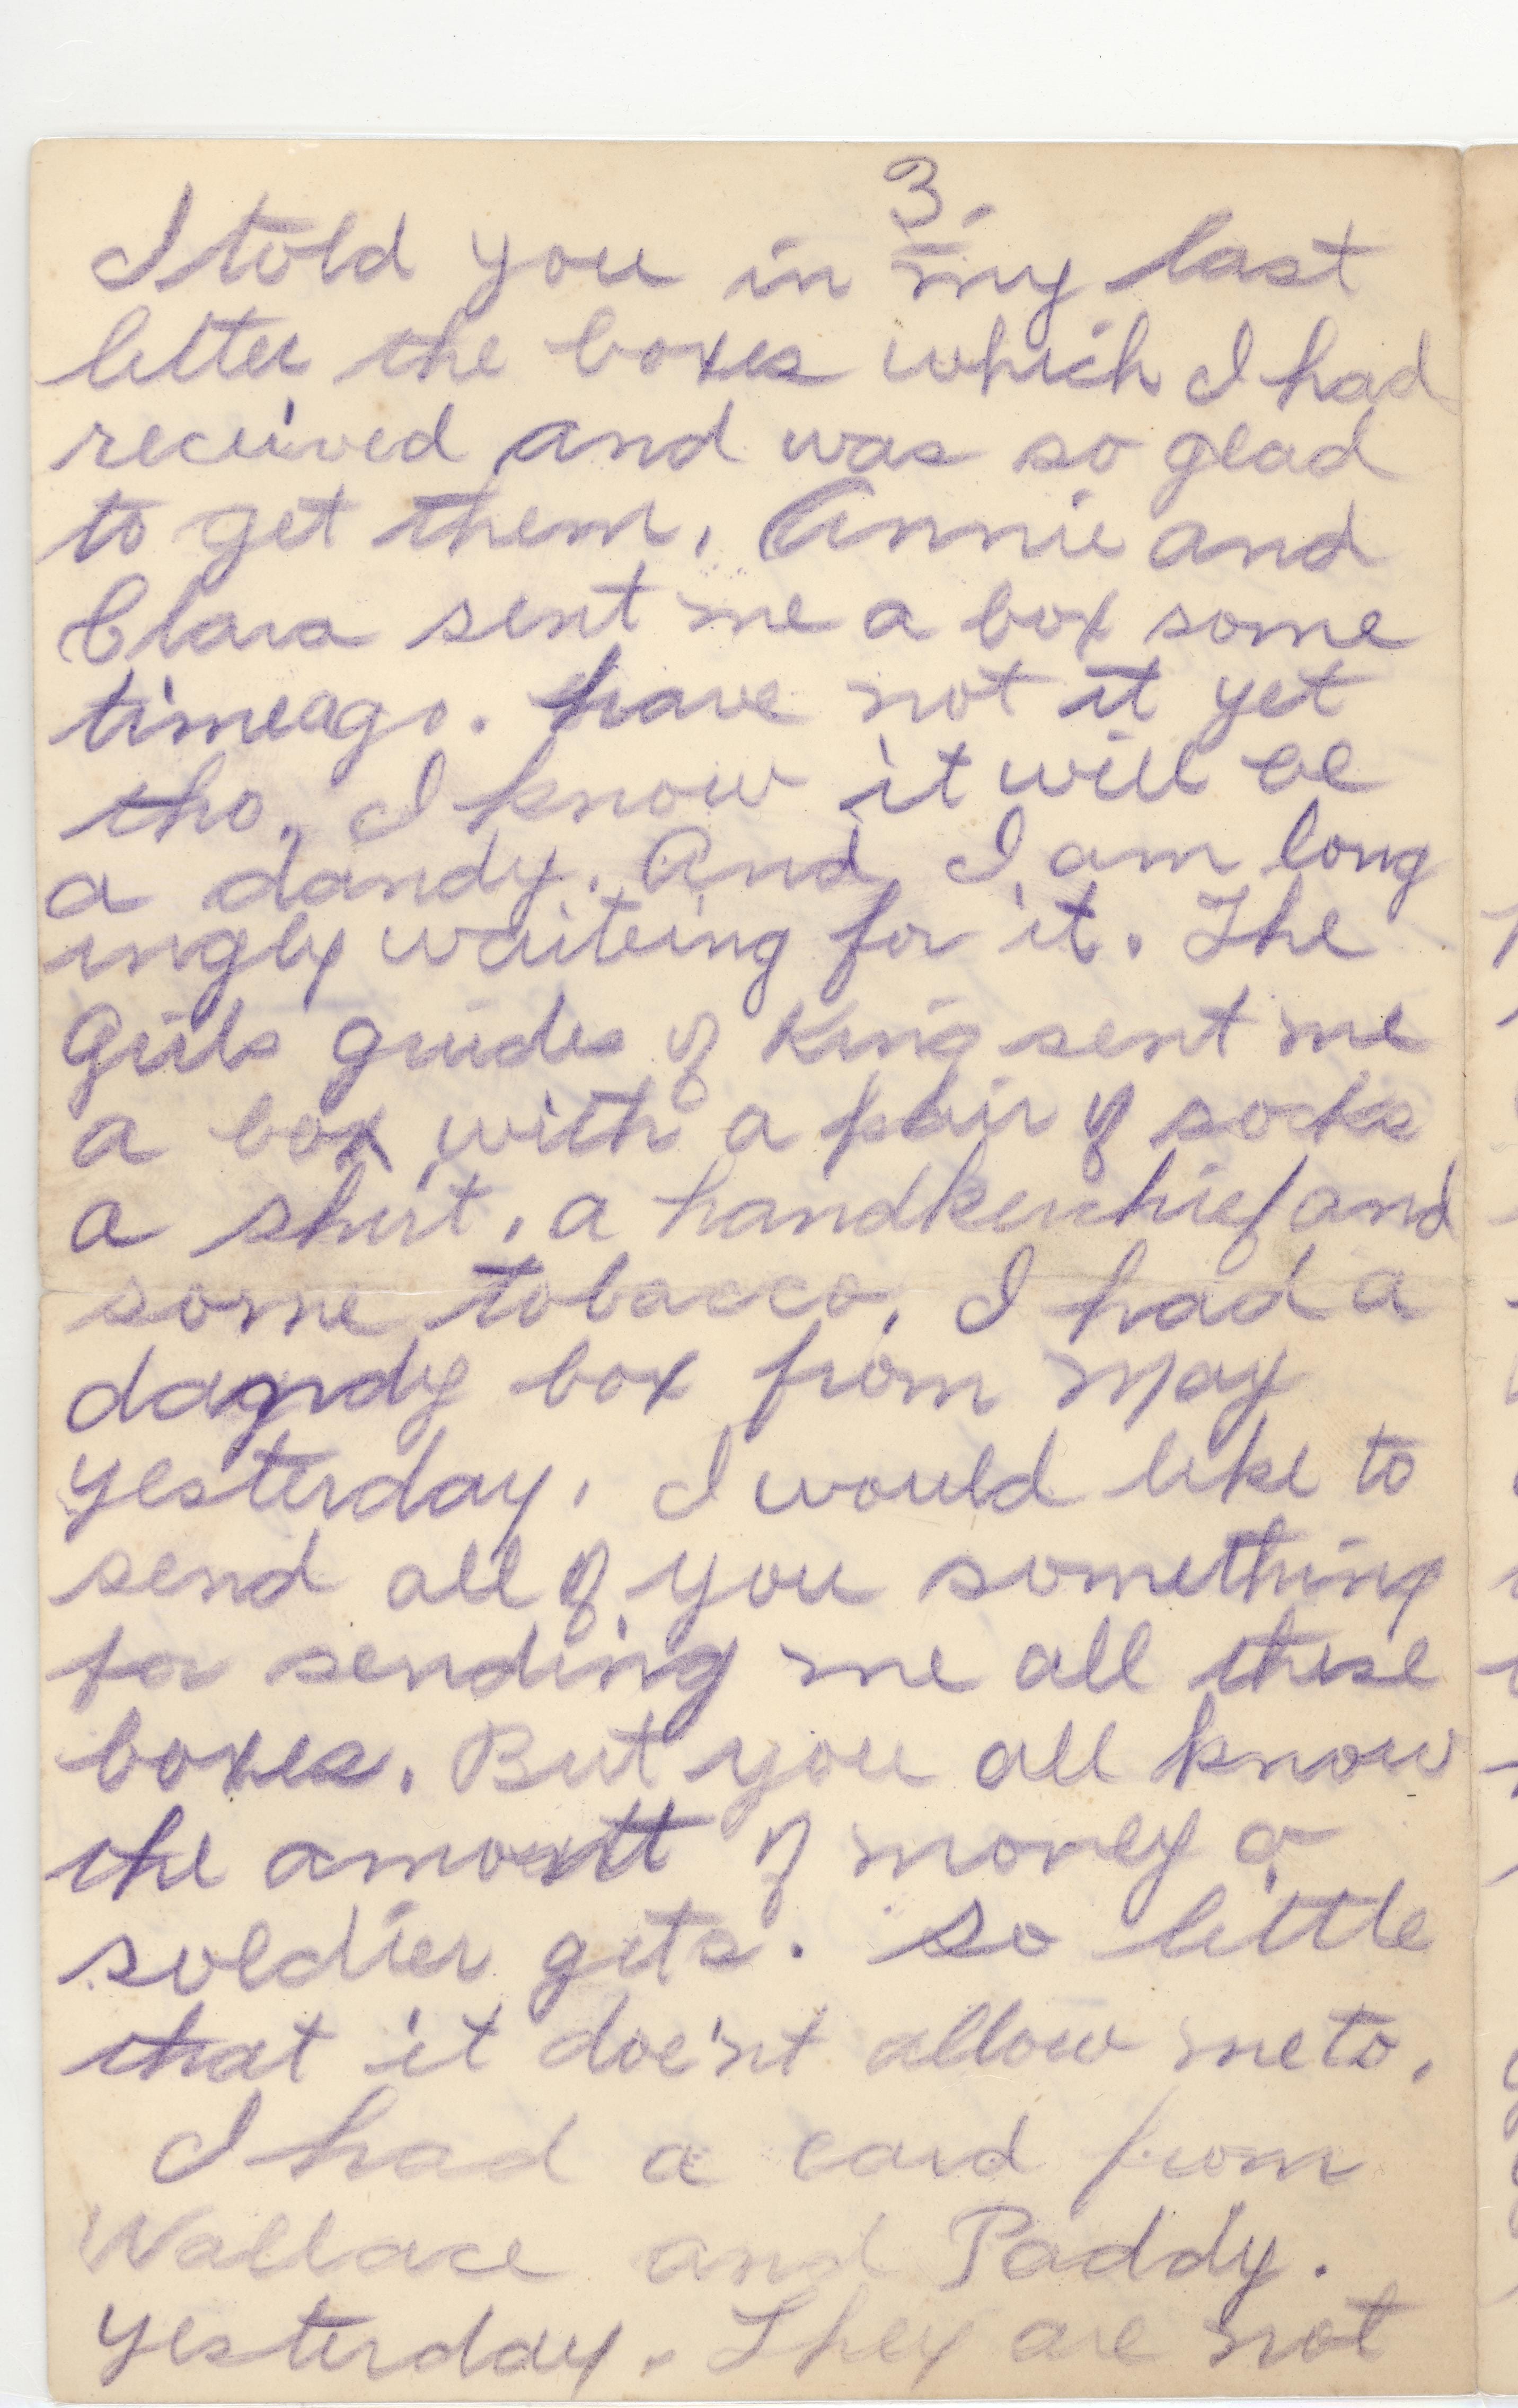 3.
I told you in my last
letter the boxes which I had
received and was so glad
to get them. Annie and
Clara sent me a box some
timeago. have not it yet
tho. I know it will be
a dandy. And I am long
ingly waiteing for it. The
Girls guides of King sent me
a box with a pair of socks
a shirt, a handkerchief and
some tobacco. I had a
dandy box from May
yesterday. I would like to
send all of you something
for sending me all these
boxes. But you all know
the amontt of money a
soldier gets. so little
that it doe'nt allow me to.
I had a card from
Wallace and Paddy.
yesterday. They are not